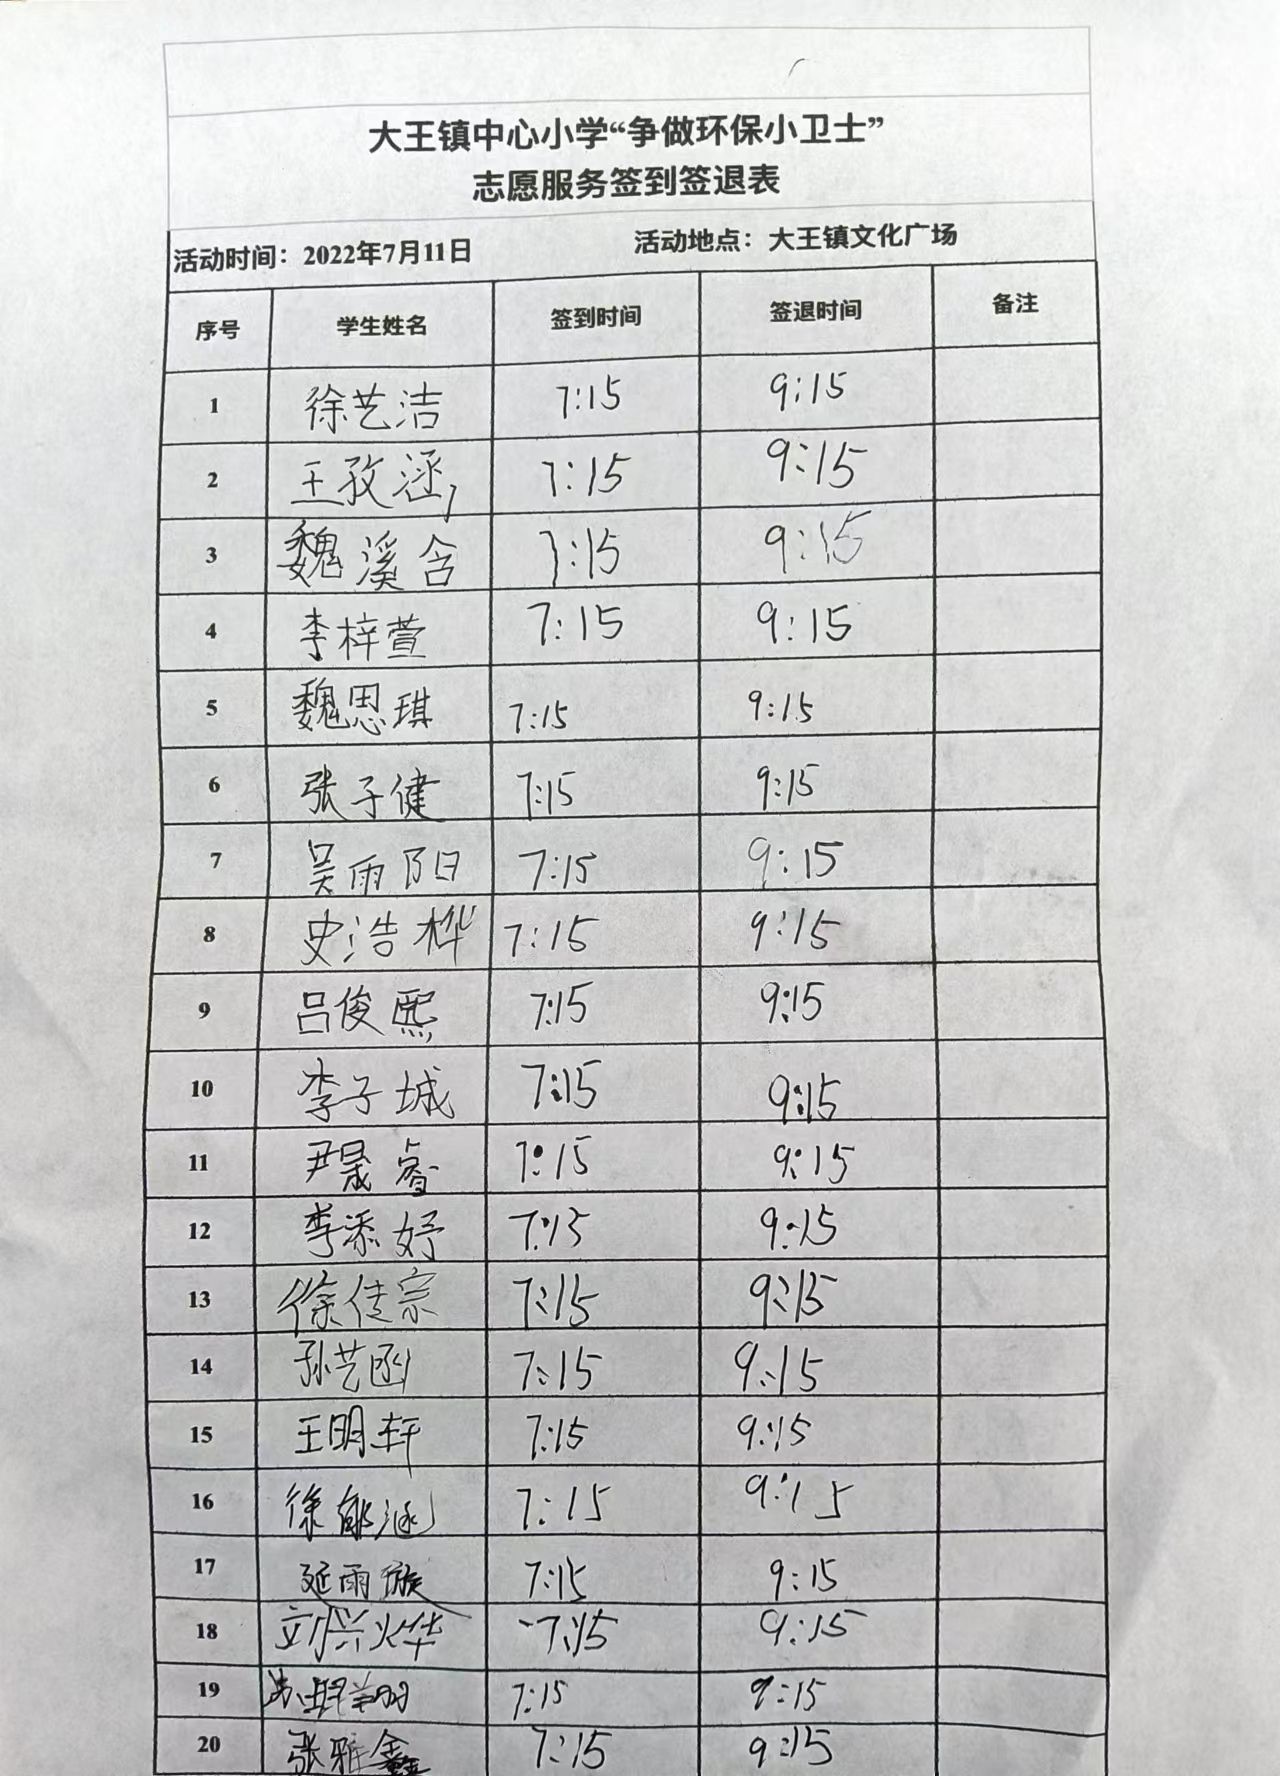 大王镇中心小学“争做环保小卫士”
志愿服务签到签退表
活动时间：2022年7月11日 活动地点：大王镇文化广场
序号 学生姓名 签到时间 签退时间 备注
1 徐艺洁 7:15 9:15
2 王孜涵 7:15 9:15
3 魏溪含 7:15 9:15
4 李梓萱 7:15 9:15
5 魏思琪 7:15 9:15
6 张子健 7:15 9:15
7 吴雨阳 7:15 9:15
8 史浩桦 7:15 9:15
9 吕俊熙 7:15 9:15
10 李子城 7:15 9:15
11 尹晟睿 7:15 9:15
12 李添妤 7:15 9:15
13 徐佳宗 7:15 9:15
14 孙艺函 7:15 9:15
15 王明轩 7:15 9:15
16 徐郁涵 7:15 9:15
17 延雨璇 7:15 9:15
18 刘兴烨 7:15 9:15
19 7:15 9:15
20 张雅鑫 7:15 9:15